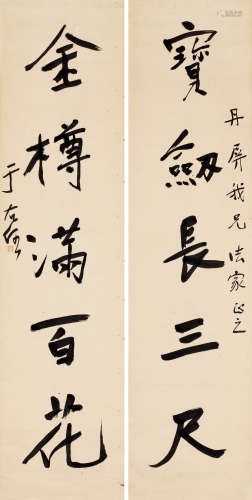 寶劔長三尺
丹屏我兄法家正之
金樽滿百花
于右任